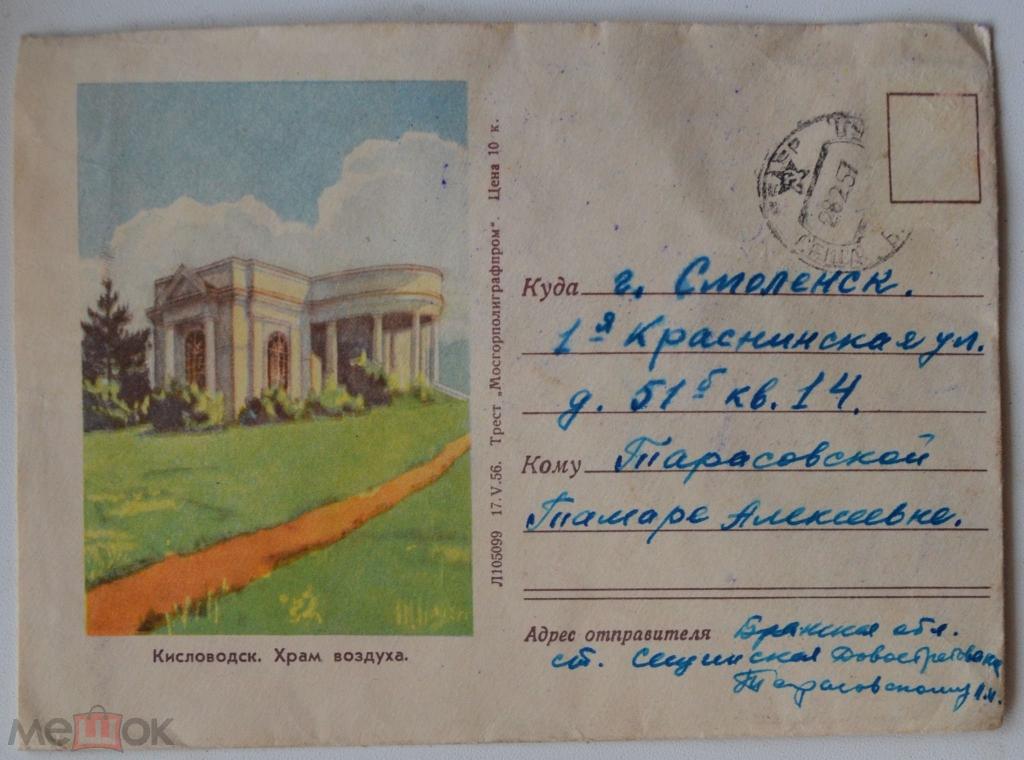 Кисловодск. Храм воздуха.
Л105099 17.V.56. Трест „Мосгорполиграфпром". Цена 10 к.
28257
СЕЩА
Куда г. Смоленск.
1я Краснинская ул.
д. 51б кв. 14.
Кому Тарасовской
Тамаре Алексеевне.
Адрес отправителя Брянская обл.
ст. Сещинская До востребования
Тарасовскому
мешок